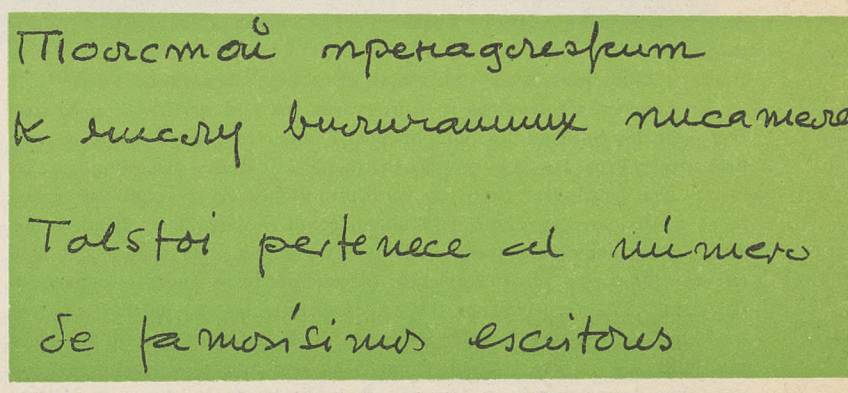 Толстой пренадлежит
к числу виличайших писателе
Tolstoi pertenece al número
de famosísimos escritores